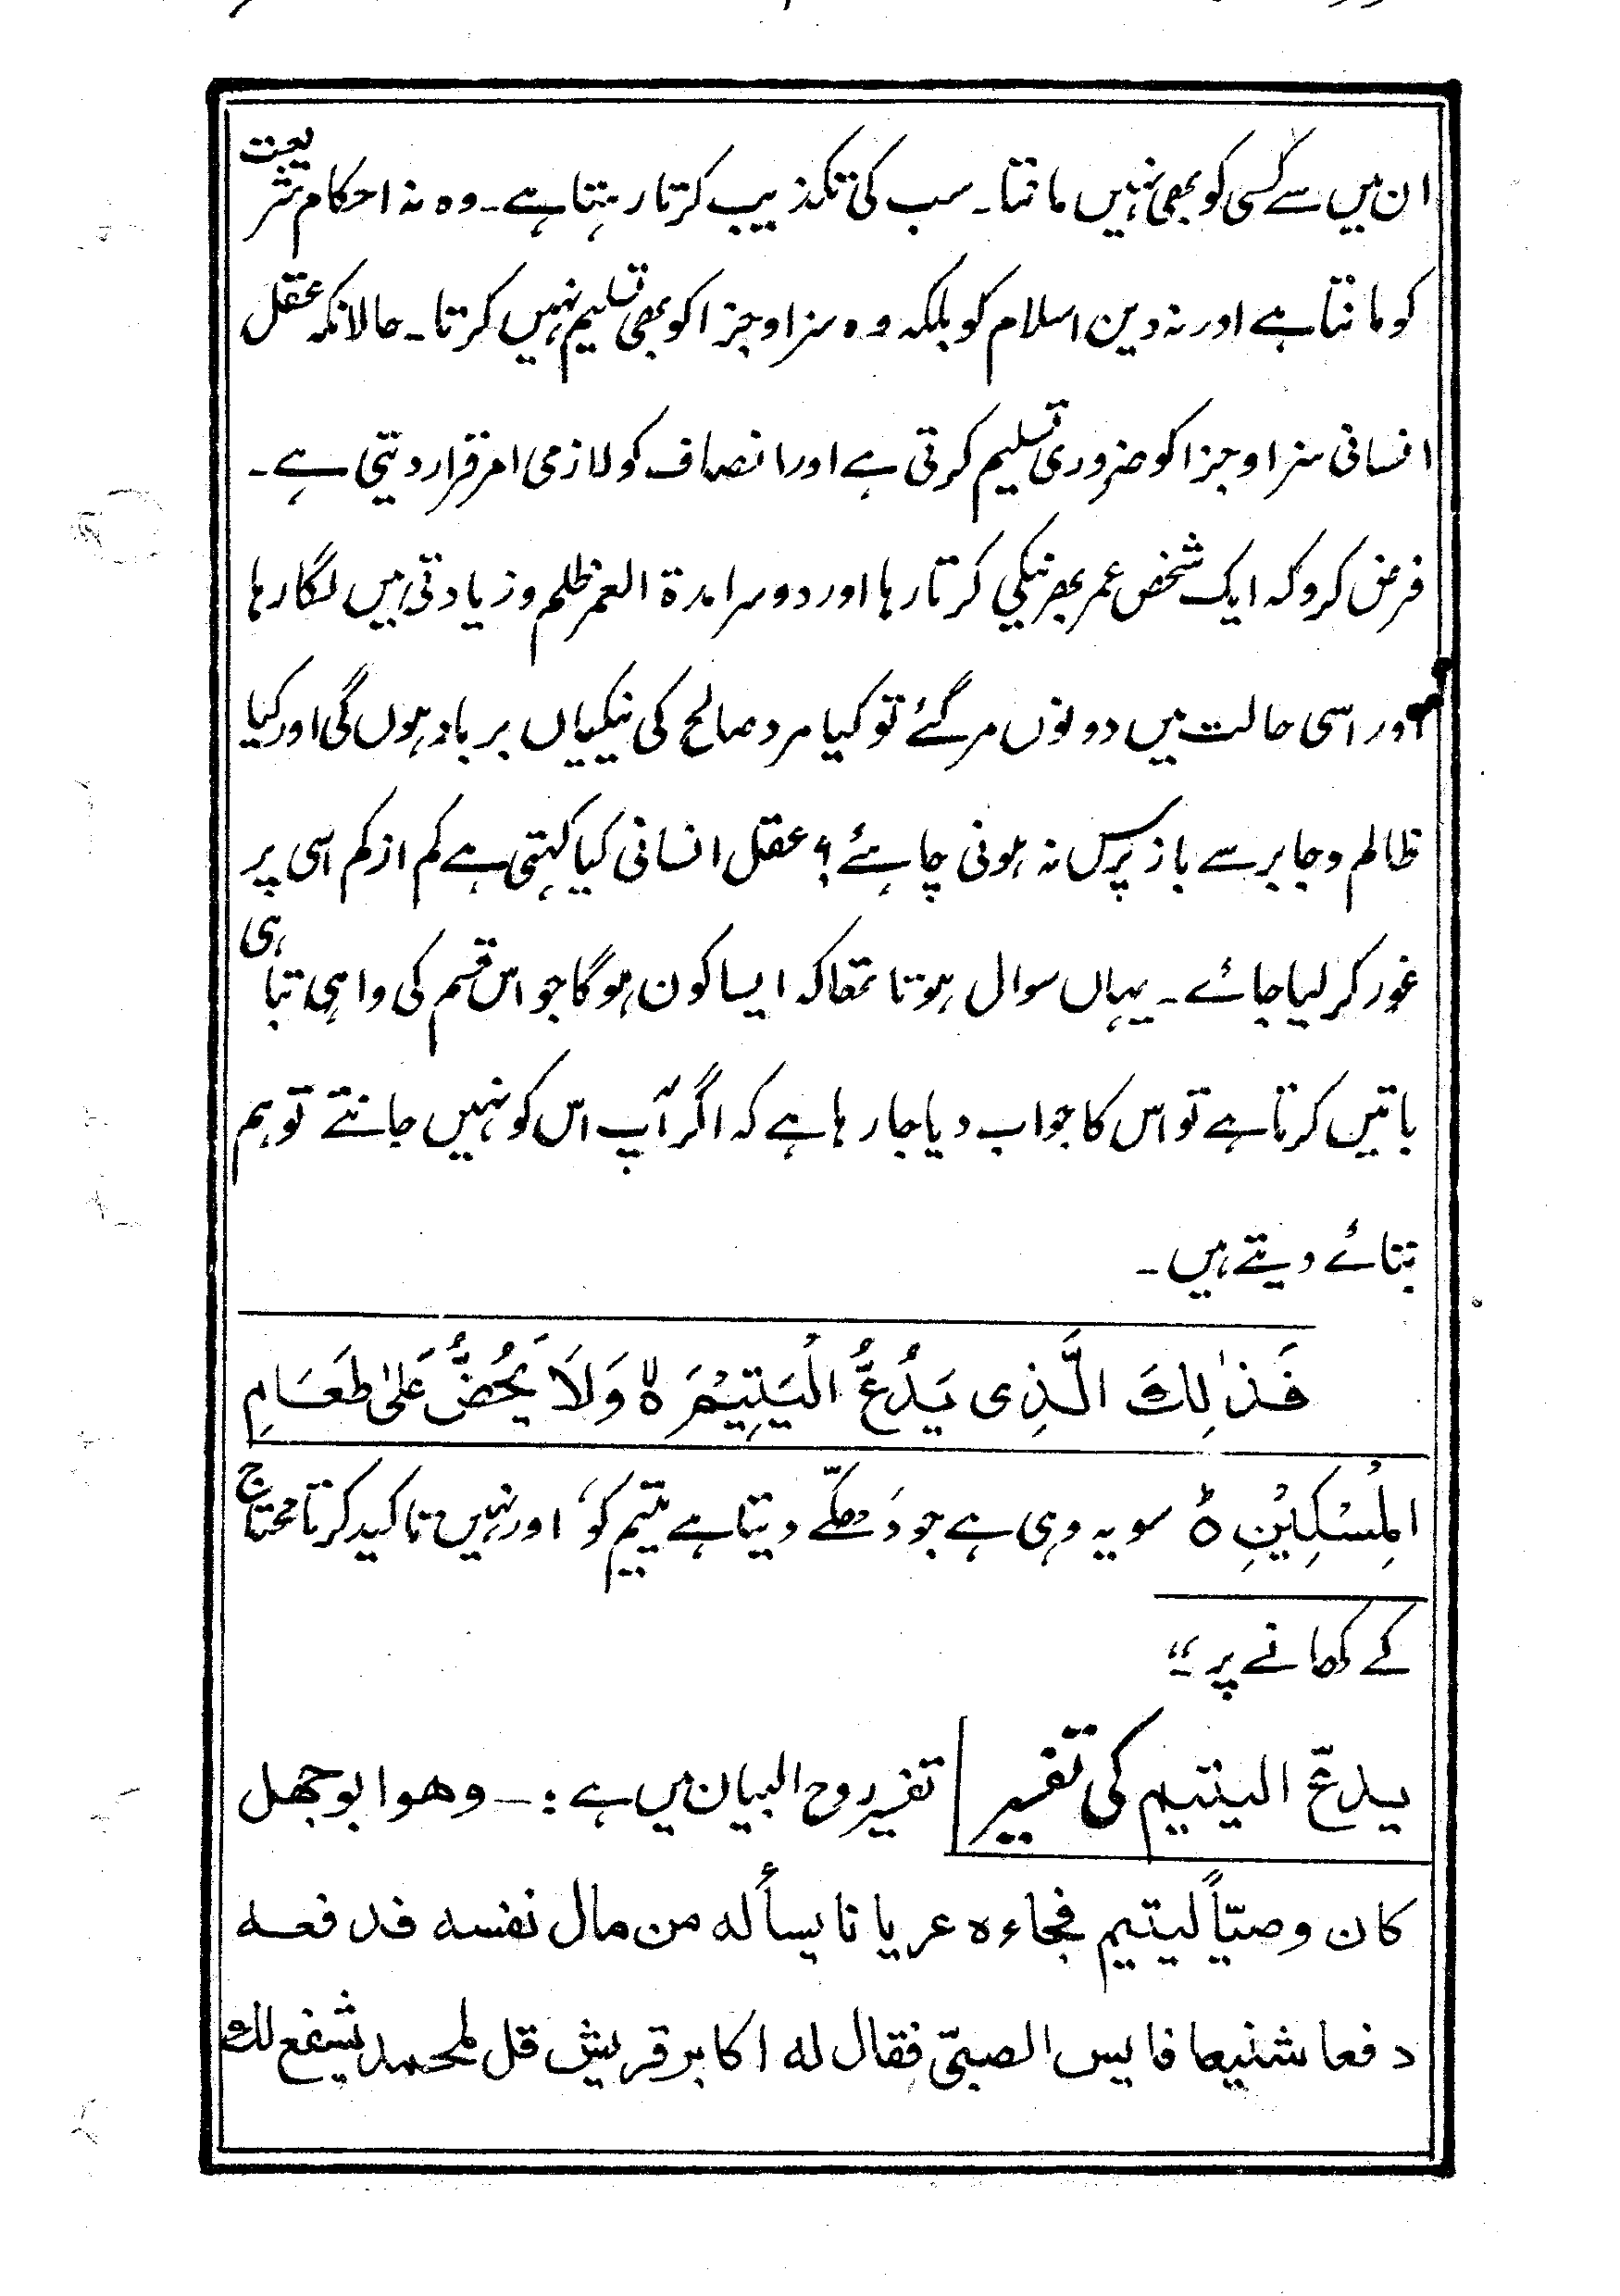 ان میں سے کسی کو بھی نہیں مانتا۔ سب کی تکذیب کرتا رہتا ہے۔ وہ نہ احکام شریعت
کو مانتا ہے اور نہ دین اسلام کو بلکہ وہ سزا و جزا کو بھی تسلیم نہیں کرتا۔ حالانکہ عقل
انسانی سزا و جزا کو ضروری تسلیم کرتی ہے اور انصاف کو لازمی امر قرار دیتی ہے۔
فرض کرو کہ ایک شخص عمر بھر نیکی کرتا رہا اور دوسرا مدۃ العمر ظلم و زیادتی میں لگا رہا
اور اسی حالت میں دونوں مر گئے تو کیا مرد صالح کی نیکیاں برباد ہوں گی اور کیا
ظالم و جابر سے باز پرس نہ ہونی چاہئے؟ عقل انسانی کیا کہتی ہے کم از کم اسی پر
غور کر لیا جائے۔ یہاں سوال ہوتا تھا کہ ایسا کون ہوگا جو اس قسم کی واہی تباہی
باتیں کرتا ہے تو اس کا جواب دیا جا رہا ہے کہ اگر آپ اس کو نہیں جانتے تو ہم
بتائے دیتے ہیں۔
فَذٰلِكَ الَّذِی یَدُعُّ الْیَتِیْمَ ۙ وَلَا یَحُضُّ عَلٰی طَعَامِ
الْمِسْكِیْنِ ؕ سو یہ وہی ہے جو دَھکّے دیتا ہے یتیم کو، اور نہیں تاکید کرتا محتاج
کے کھانے پر۔“
یدعّ الیتیم کی تفسیر تفسیر روح البیان میں ہے :۔ وھو ابوجھل
کان وصیّاً لیتیم فجاءہ عریانا یسألہ من مال نفسہ فدفعہ
دفعا شنیعا فایس الصبیّ فقال لہ اکابر قریش قل لمحمد یشفع لك